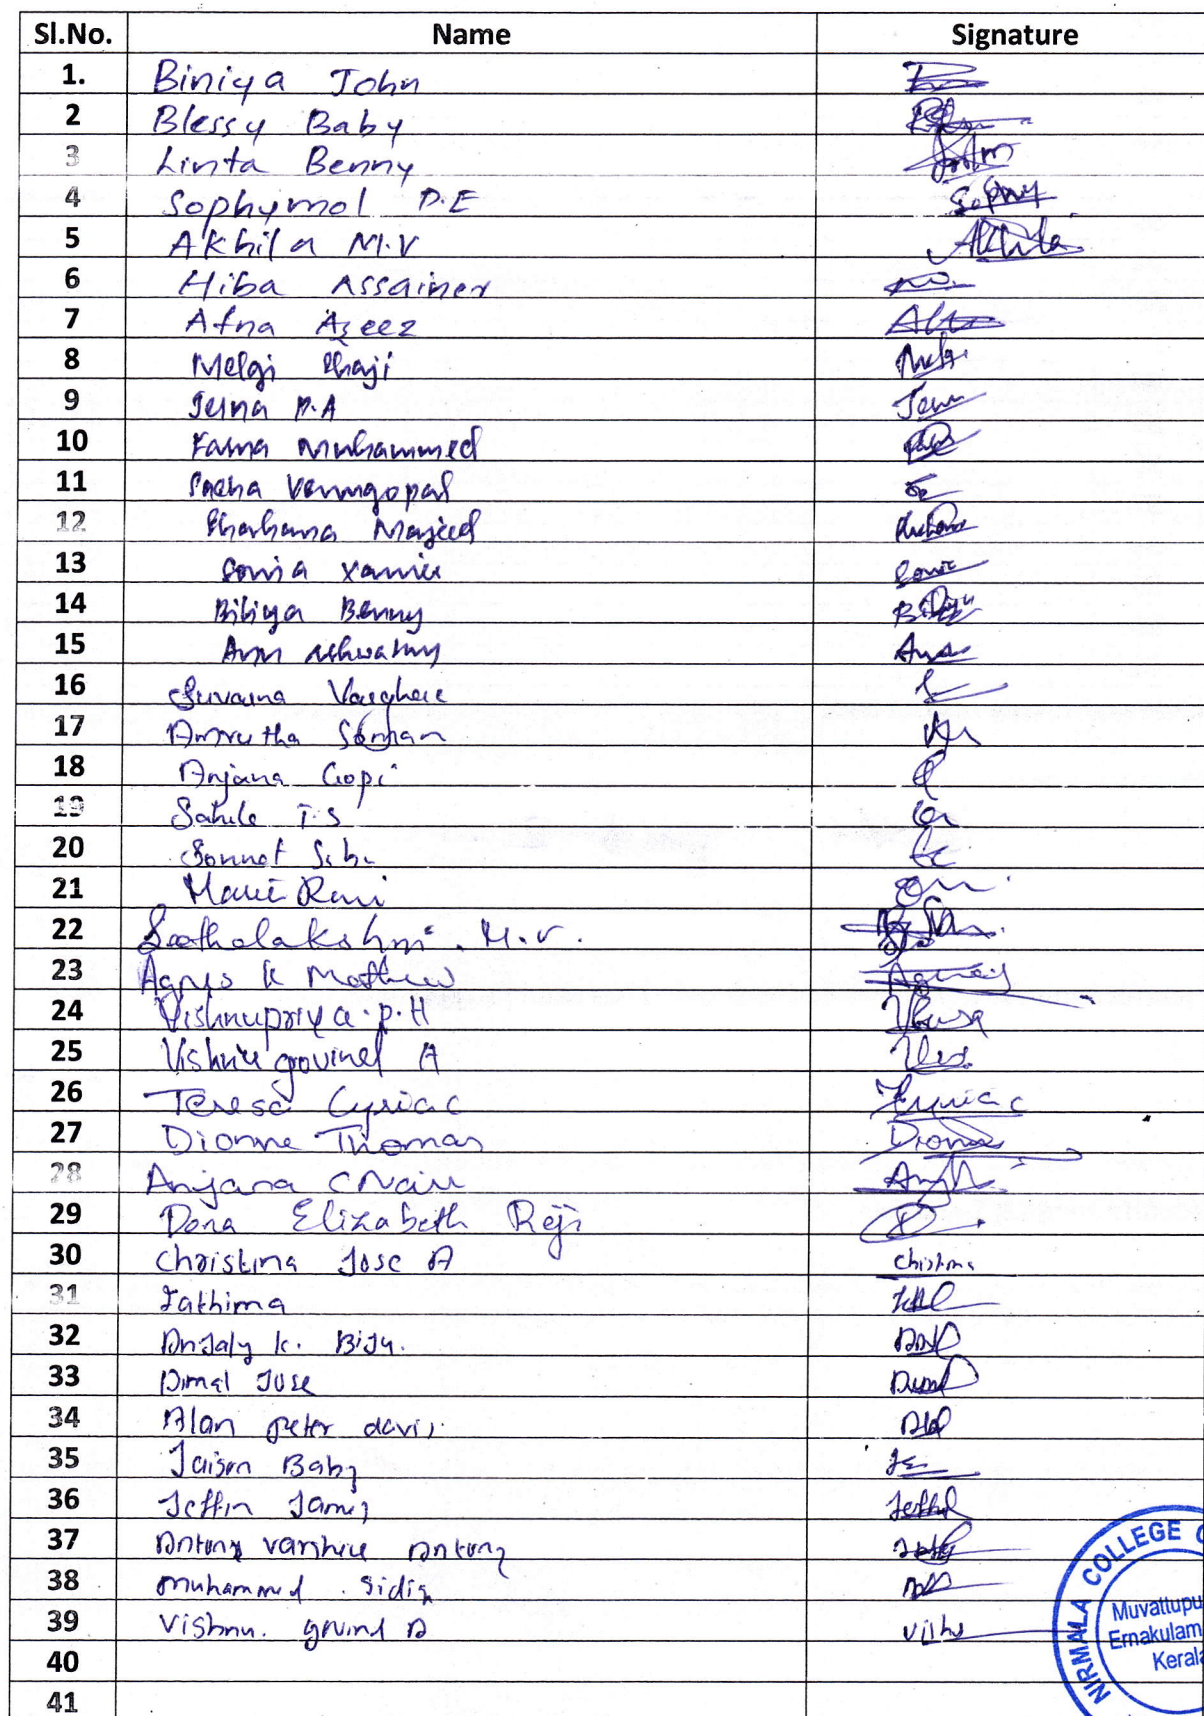 Sl.No. Name Signature
1. Biniya John
2 Blessy Baby
3 Linta Benny
4 Sophymol P.E Sophy
5 Akhila M.V Akhila
6 Hiba Assainer
7 Afna Azeez
8 Melgi Shaji
9 Jesna P.A
10 Fama Muhammed
11 Sneha Venugopal
12 Sharhana Majeed
13 Sonia Xavier Sonia
14 Bibiya Benny
15 Ann Ashwathy
16 Suvarna Varghese
17 Amrutha Soman
18 Anjana Gopi
19 T.S
20 Sonnet Sibi
21 Rani
22 Seethalakshmi. M.V.
23 Agnes K Mathew
24 Vishnupriya.P.H
25 Vishnu govind A
26 Teresa Cyriac Cyriac
27 Dionne Thomas
28 Anjana C Nair
29 Dona Elizabeth Reji
30 Christina Jose A Christina
31 Fathima
32 AnJaly K. BiJu.
33 Amal Jose
34 Alan Peter davis
35 Jaison Baby
36 Jeffin James
37 Antony Antony
38 Muhammed . Sidiq
39 Vishnu. govind A
40
41
NIRMALA COLLEGE
Muvattupu
Ernakulam
Kerala